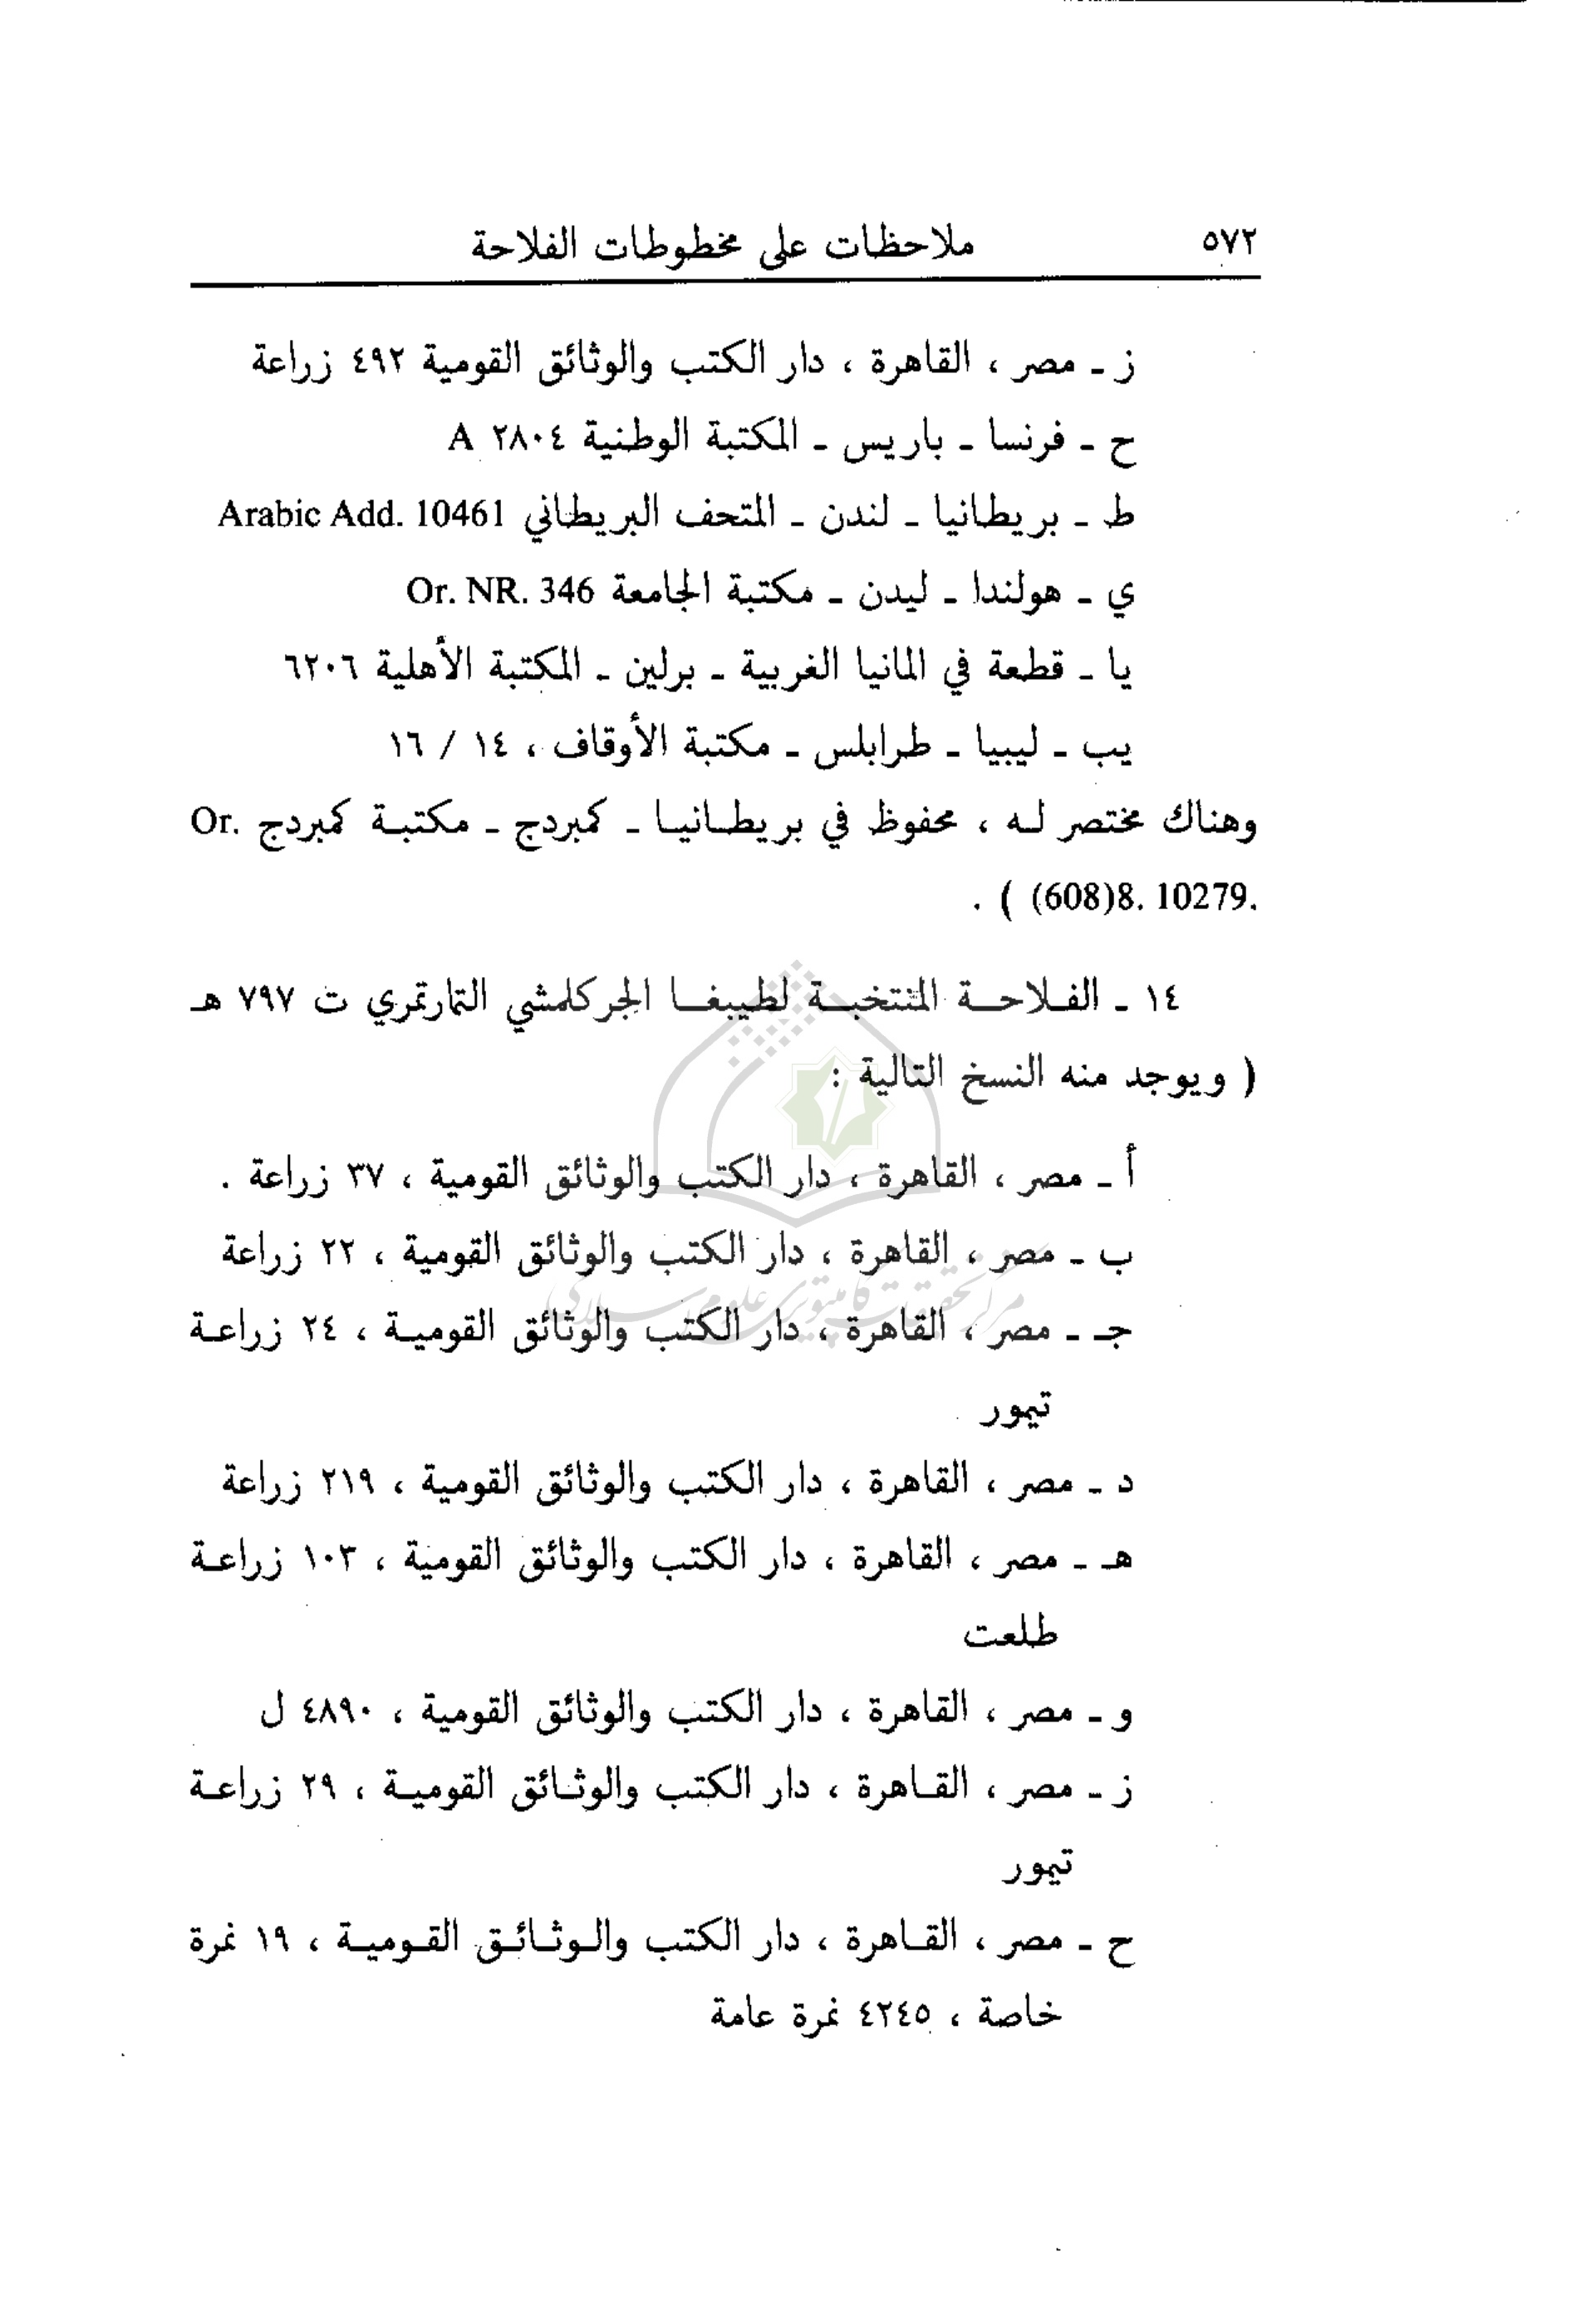 ٥٧٢ ملاحظات على مخطوطات الفلاحة
ز ـ مصر ، القاهرة ، دار الكتب والوثائق القومية ٤٩٢ زراعة
ح ـ فرنسا ـ باريس ـ المكتبة الوطنية ٢٨٠٤ A
ط ـ بريطانيا ـ لندن ـ المتحف البريطاني Arabic Add. 10461
ي ـ هولندا ـ ليدن ـ مكتبة الجامعة Or. NR. 346
يا ـ قطعة في المانيا الغربية ـ برلين ـ المكتبة الأهلية ٦٢٠٦
يب ـ ليبيا ـ طرابلس ـ مكتبة الأوقاف ، ١٤ / ١٦
وهناك مختصر له ، محفوظ في بريطانيا ـ كمبردج ـ مكتبة كمبردج Or.
. ( (608)8. 10279.
١٤ ـ الفلاحة المنتخبة لطيبغا الجركلمشي التمارتمري ت ٧٩٧ هـ
( ويوجد منه النسخ التالية :
أ ـ مصر ، القاهرة ، دار الكتب والوثائق القومية ، ٣٧ زراعة .
ب ـ مصر ، القاهرة ، دار الكتب والوثائق القومية ، ٢٢ زراعة
جـ ـ مصر ، القاهرة ، دار الكتب والوثائق القومية ، ٢٤ زراعة
تيمور
د ـ مصر ، القاهرة ، دار الكتب والوثائق القومية ، ٢١٩ زراعة
هـ ـ مصر ، القاهرة ، دار الكتب والوثائق القومية ، ١٠٣ زراعة
طلعت
و ـ مصر ، القاهرة ، دار الكتب والوثائق القومية ، ٤٨٩٠ ل
ز ـ مصر ، القاهرة ، دار الكتب والوثائق القومية ، ٢٩ زراعة
تيمور
ح ـ مصر ، القاهرة ، دار الكتب والوثائق القومية ، ١٩ نمرة
خاصة ، ٤٢٤٥ نمرة عامة
مركز تحقيقات كامپيوتری علوم اسلامی